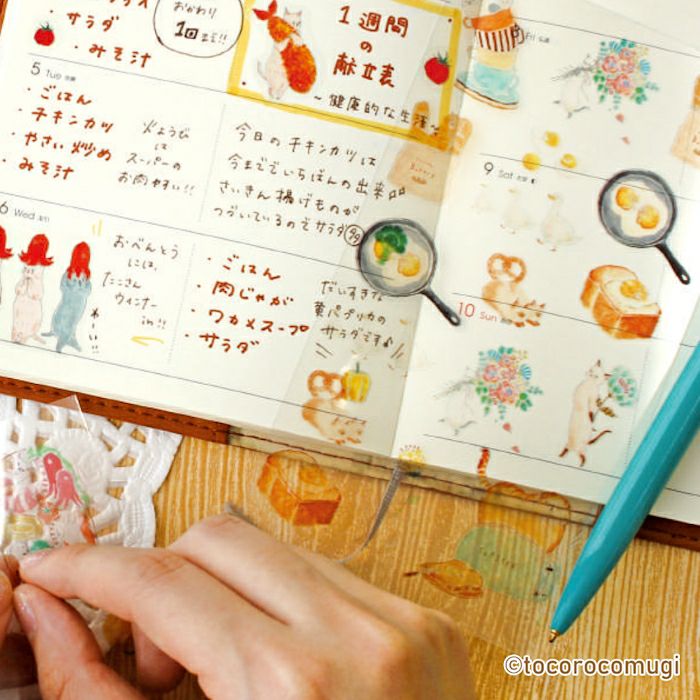 ・サラダ
・みそ汁
おかわり
1回まで!!
1週間
の
献立表
～健康的な生活～
5 Tue
・ごはん
・チキンカツ
・やさい炒め
・みそ汁
火ようび
は
スーパーの
お肉やすい!!
今日のチキンカツは
今まででいちばんの出来
さいきん揚げものが
つづいているのでサラダ
6 Wed
おべんとう
には、
たこさん
ウィンナー
in!!
わーい!!
・ごはん
・肉じゃが
・ワカメスープ
・サラダ
だいすきな
黄パプリカの
サラダです♪
Fri
9 Sat
10 Sun
©tocorocomugi